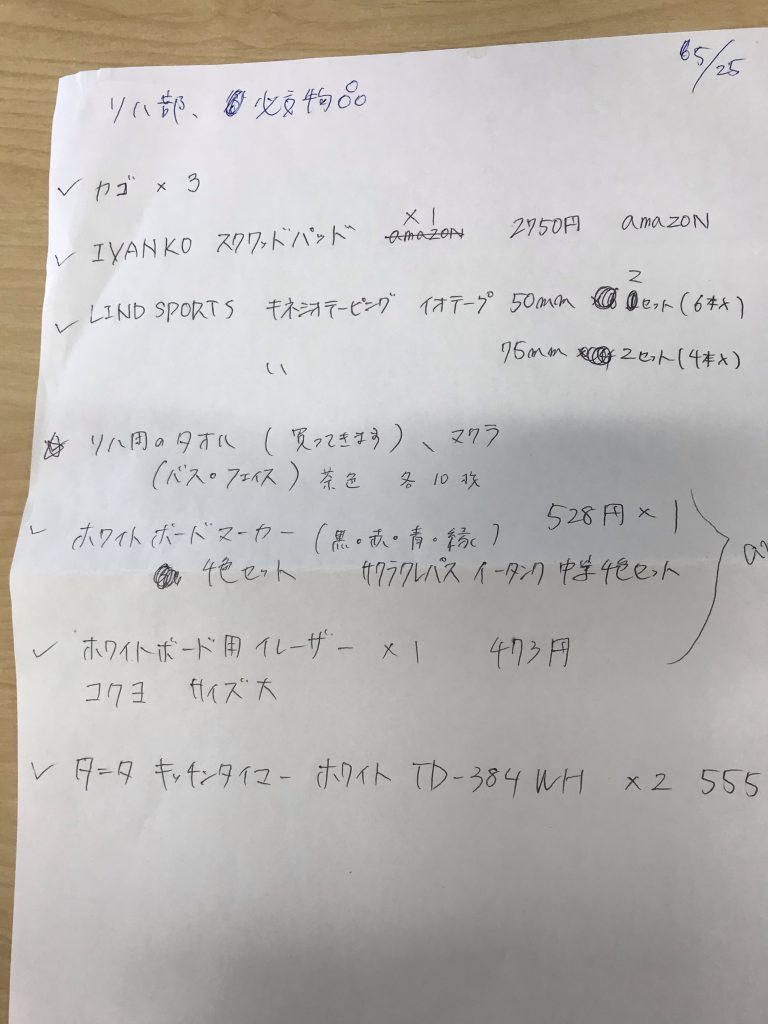 5/25
リハ部、必要物品
✓ カゴ × 3
✓ IYANKO スクワッドパッド ×1 2750円 amazon
✓ LIND SPORTS キネシオテーピング イオテープ 50mm 2セット(6本入)
〃 75mm 2セット(4本入)
☆ リハ用のタオル (買ってきます)、マクラ
(バス・フェイス) 茶色 各10枚
✓ ホワイトボードマーカー (黒・赤・青・緑) 528円 × 1
4色セット サクラクレパス イータンク 中字4色セット
✓ ホワイトボード用イレーザー × 1 473円
コクヨ サイズ大
✓ タニタ キッチンタイマー ホワイト TD-384 WH × 2 555